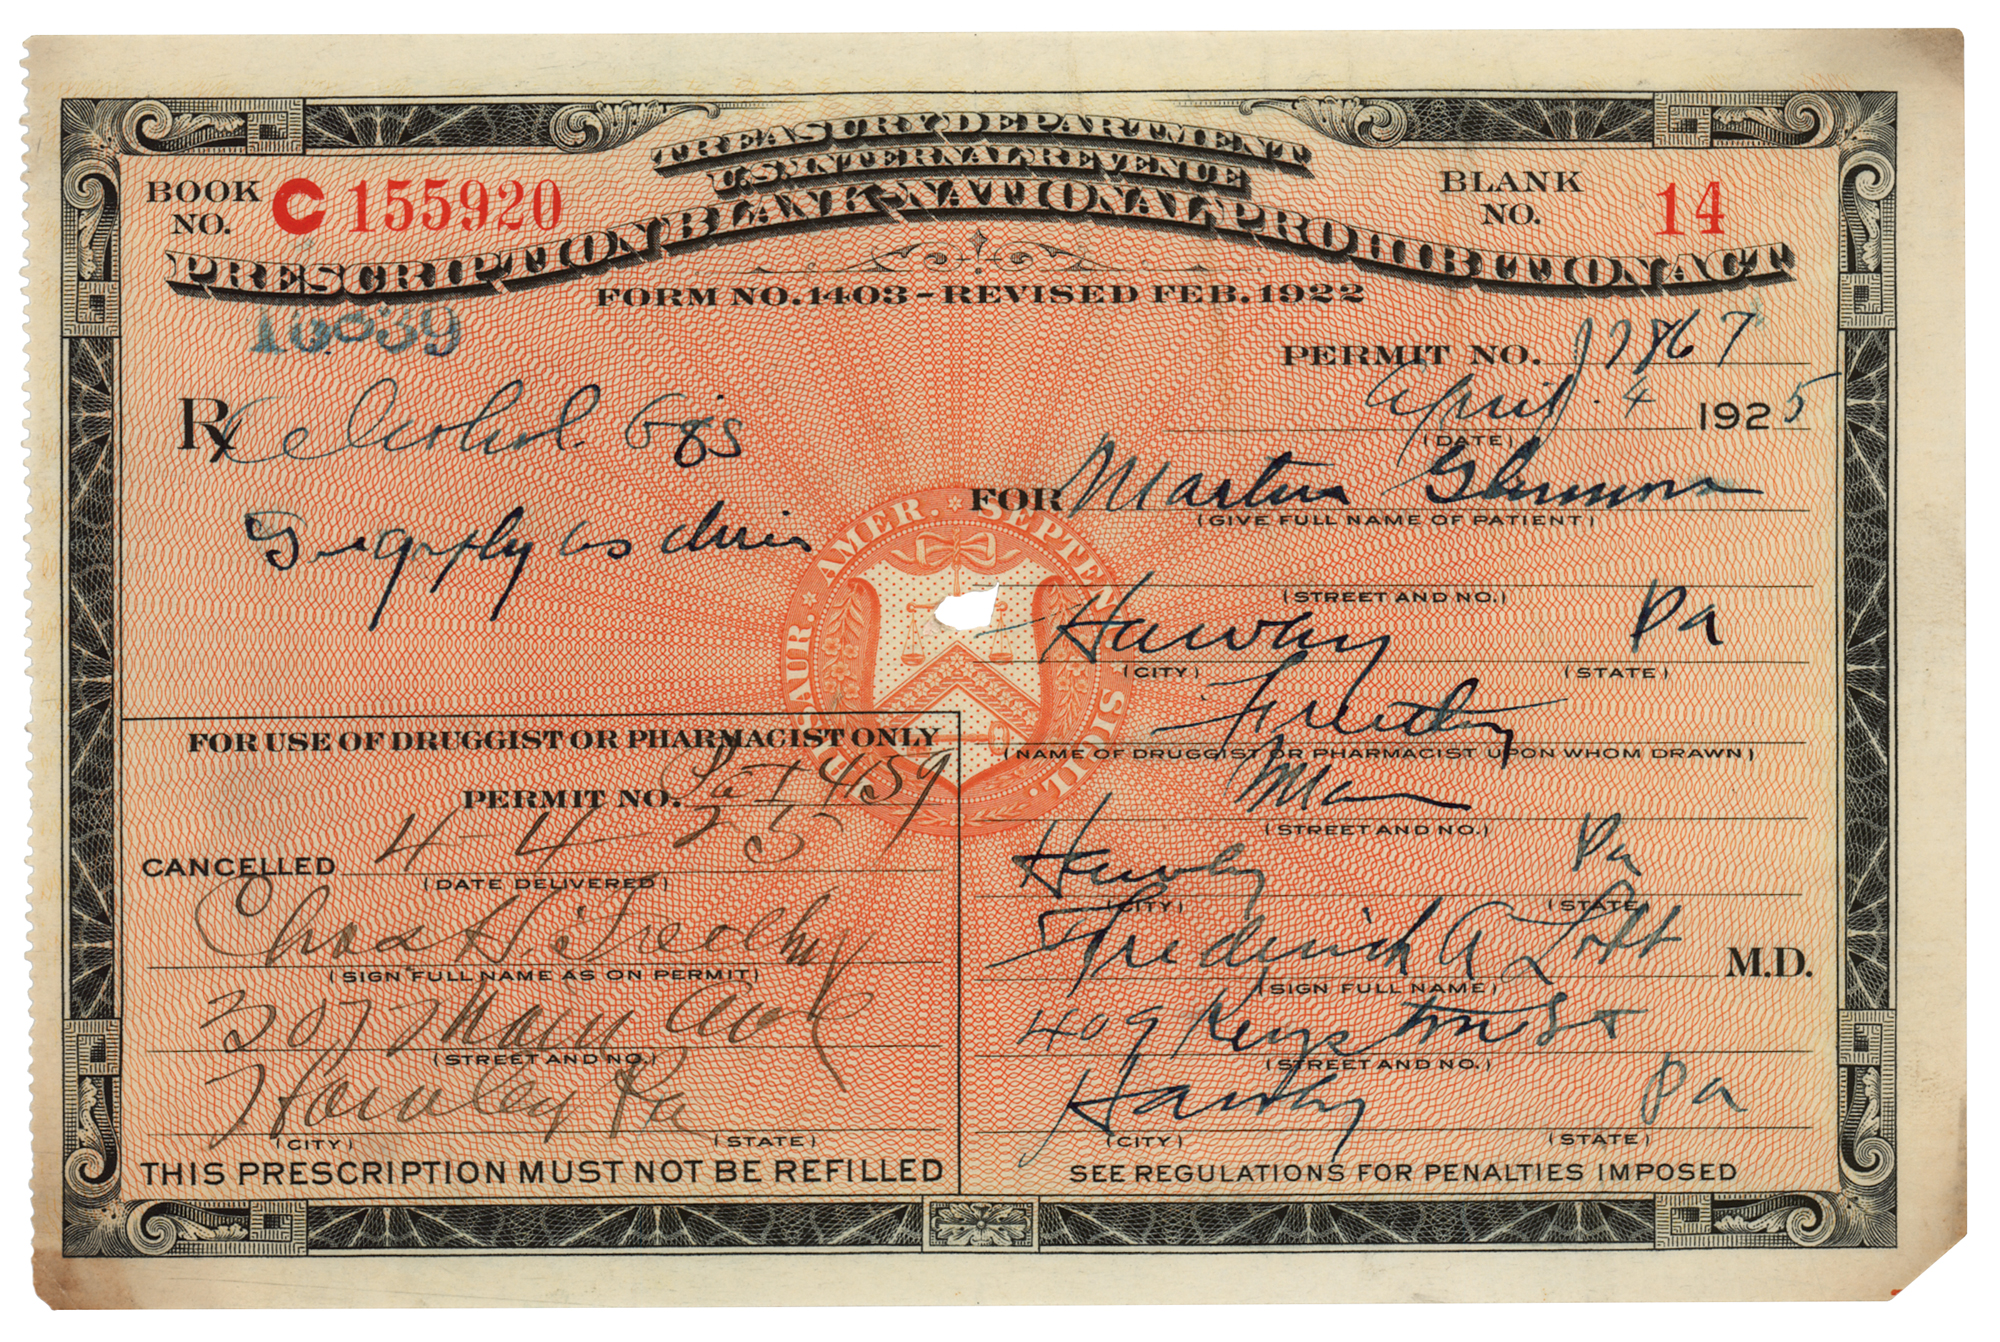 TREASURY DEPARTMENT
U.S. INTERNAL REVENUE
PRESCRIPTION BLANK-NATIONAL PROHIBITION ACT
FORM NO. 1403 - REVISED FEB. 1922
BOOK NO. C155920
BLANK NO. 14
16039
PERMIT NO.
April 4 1925
(DATE)
Rx Alcohol
as direc
FOR Martin
(GIVE FULL NAME OF PATIENT)
(STREET AND NO.)
Hawley Pa
(CITY) (STATE)
(NAME OF DRUGGIST OR PHARMACIST UPON WHOM DRAWN)
Main
(STREET AND NO.)
Hawley Pa
(CITY) (STATE)
Frederick A Lobb M.D.
(SIGN FULL NAME)
409 Keystone St
(STREET AND NO.)
Hawley Pa
(CITY) (STATE)
SEE REGULATIONS FOR PENALTIES IMPOSED
FOR USE OF DRUGGIST OR PHARMACIST ONLY
PERMIT NO. Pa I 4159
CANCELLED 4-4-25
(DATE DELIVERED)
Chas H.
(SIGN FULL NAME AS ON PERMIT)
307 Main Ave
(STREET AND NO.)
Hawley Pa
(CITY) (STATE)
THIS PRESCRIPTION MUST NOT BE REFILLED
THESAUR. AMER. SEPTENT. SIGIL.